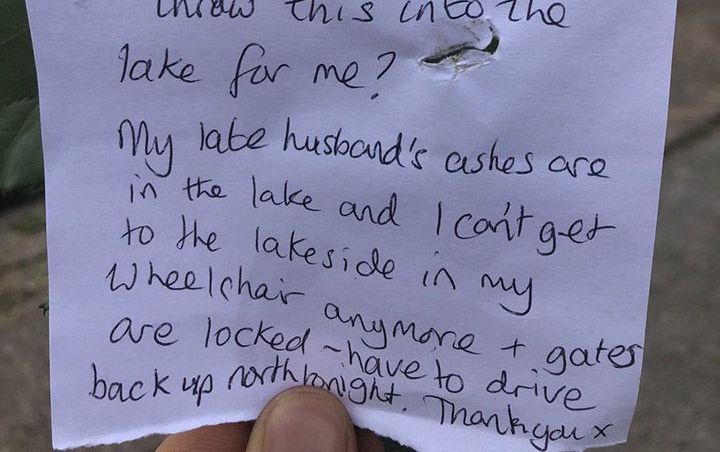 throw this into the
lake for me?
My late husband's ashes are
in the lake and I can't get
to the lakeside in my
wheelchair anymore + gates
are locked - have to drive
back up north tonight. Thankyou x